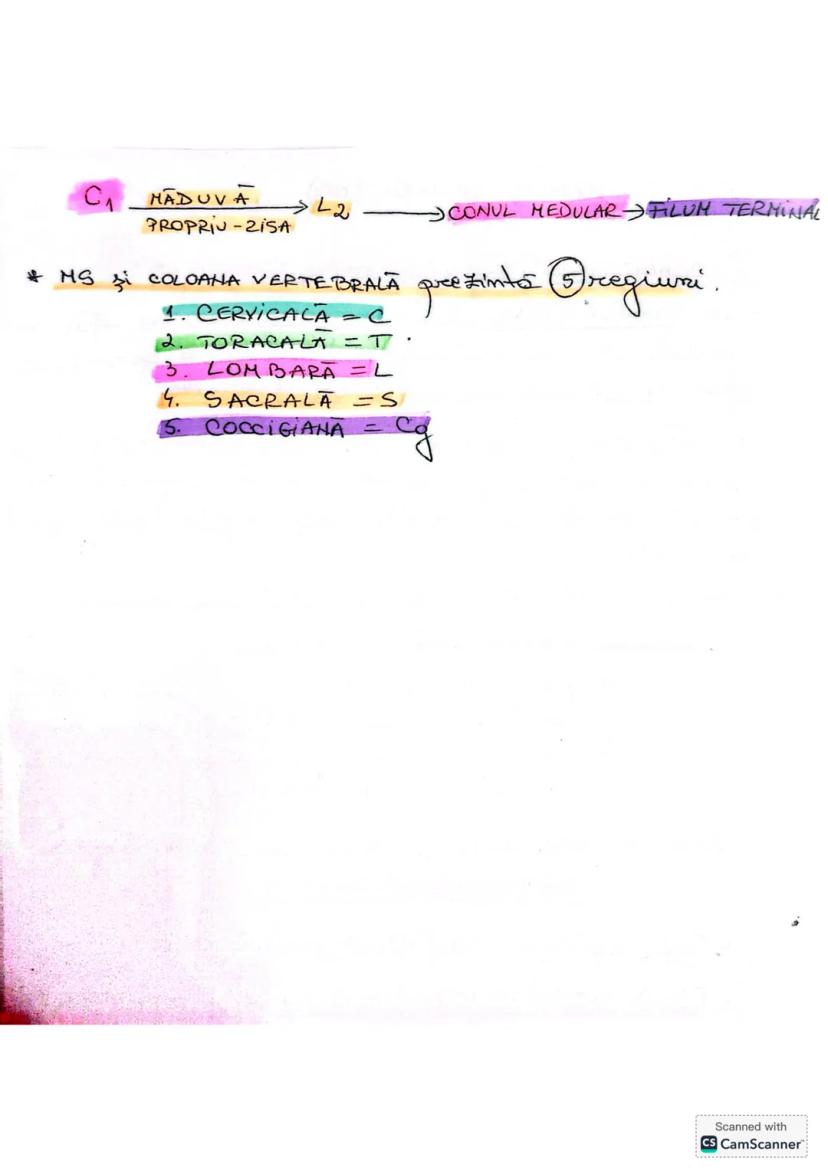 C1 MĂDUVĂ PROPRIU-ZISA → L2 → CONUL MEDULAR → FILUM TERMINAL
* MS și COLOANA VERTEBRALĂ prezintă 5 regiuni.
1. CERVICALĂ = C
2. TORACALĂ = T
3. LOMBARĂ = L
4. SACRALĂ = S
5. COCCIGIANĂ = Cg
Scanned with
CS CamScanner